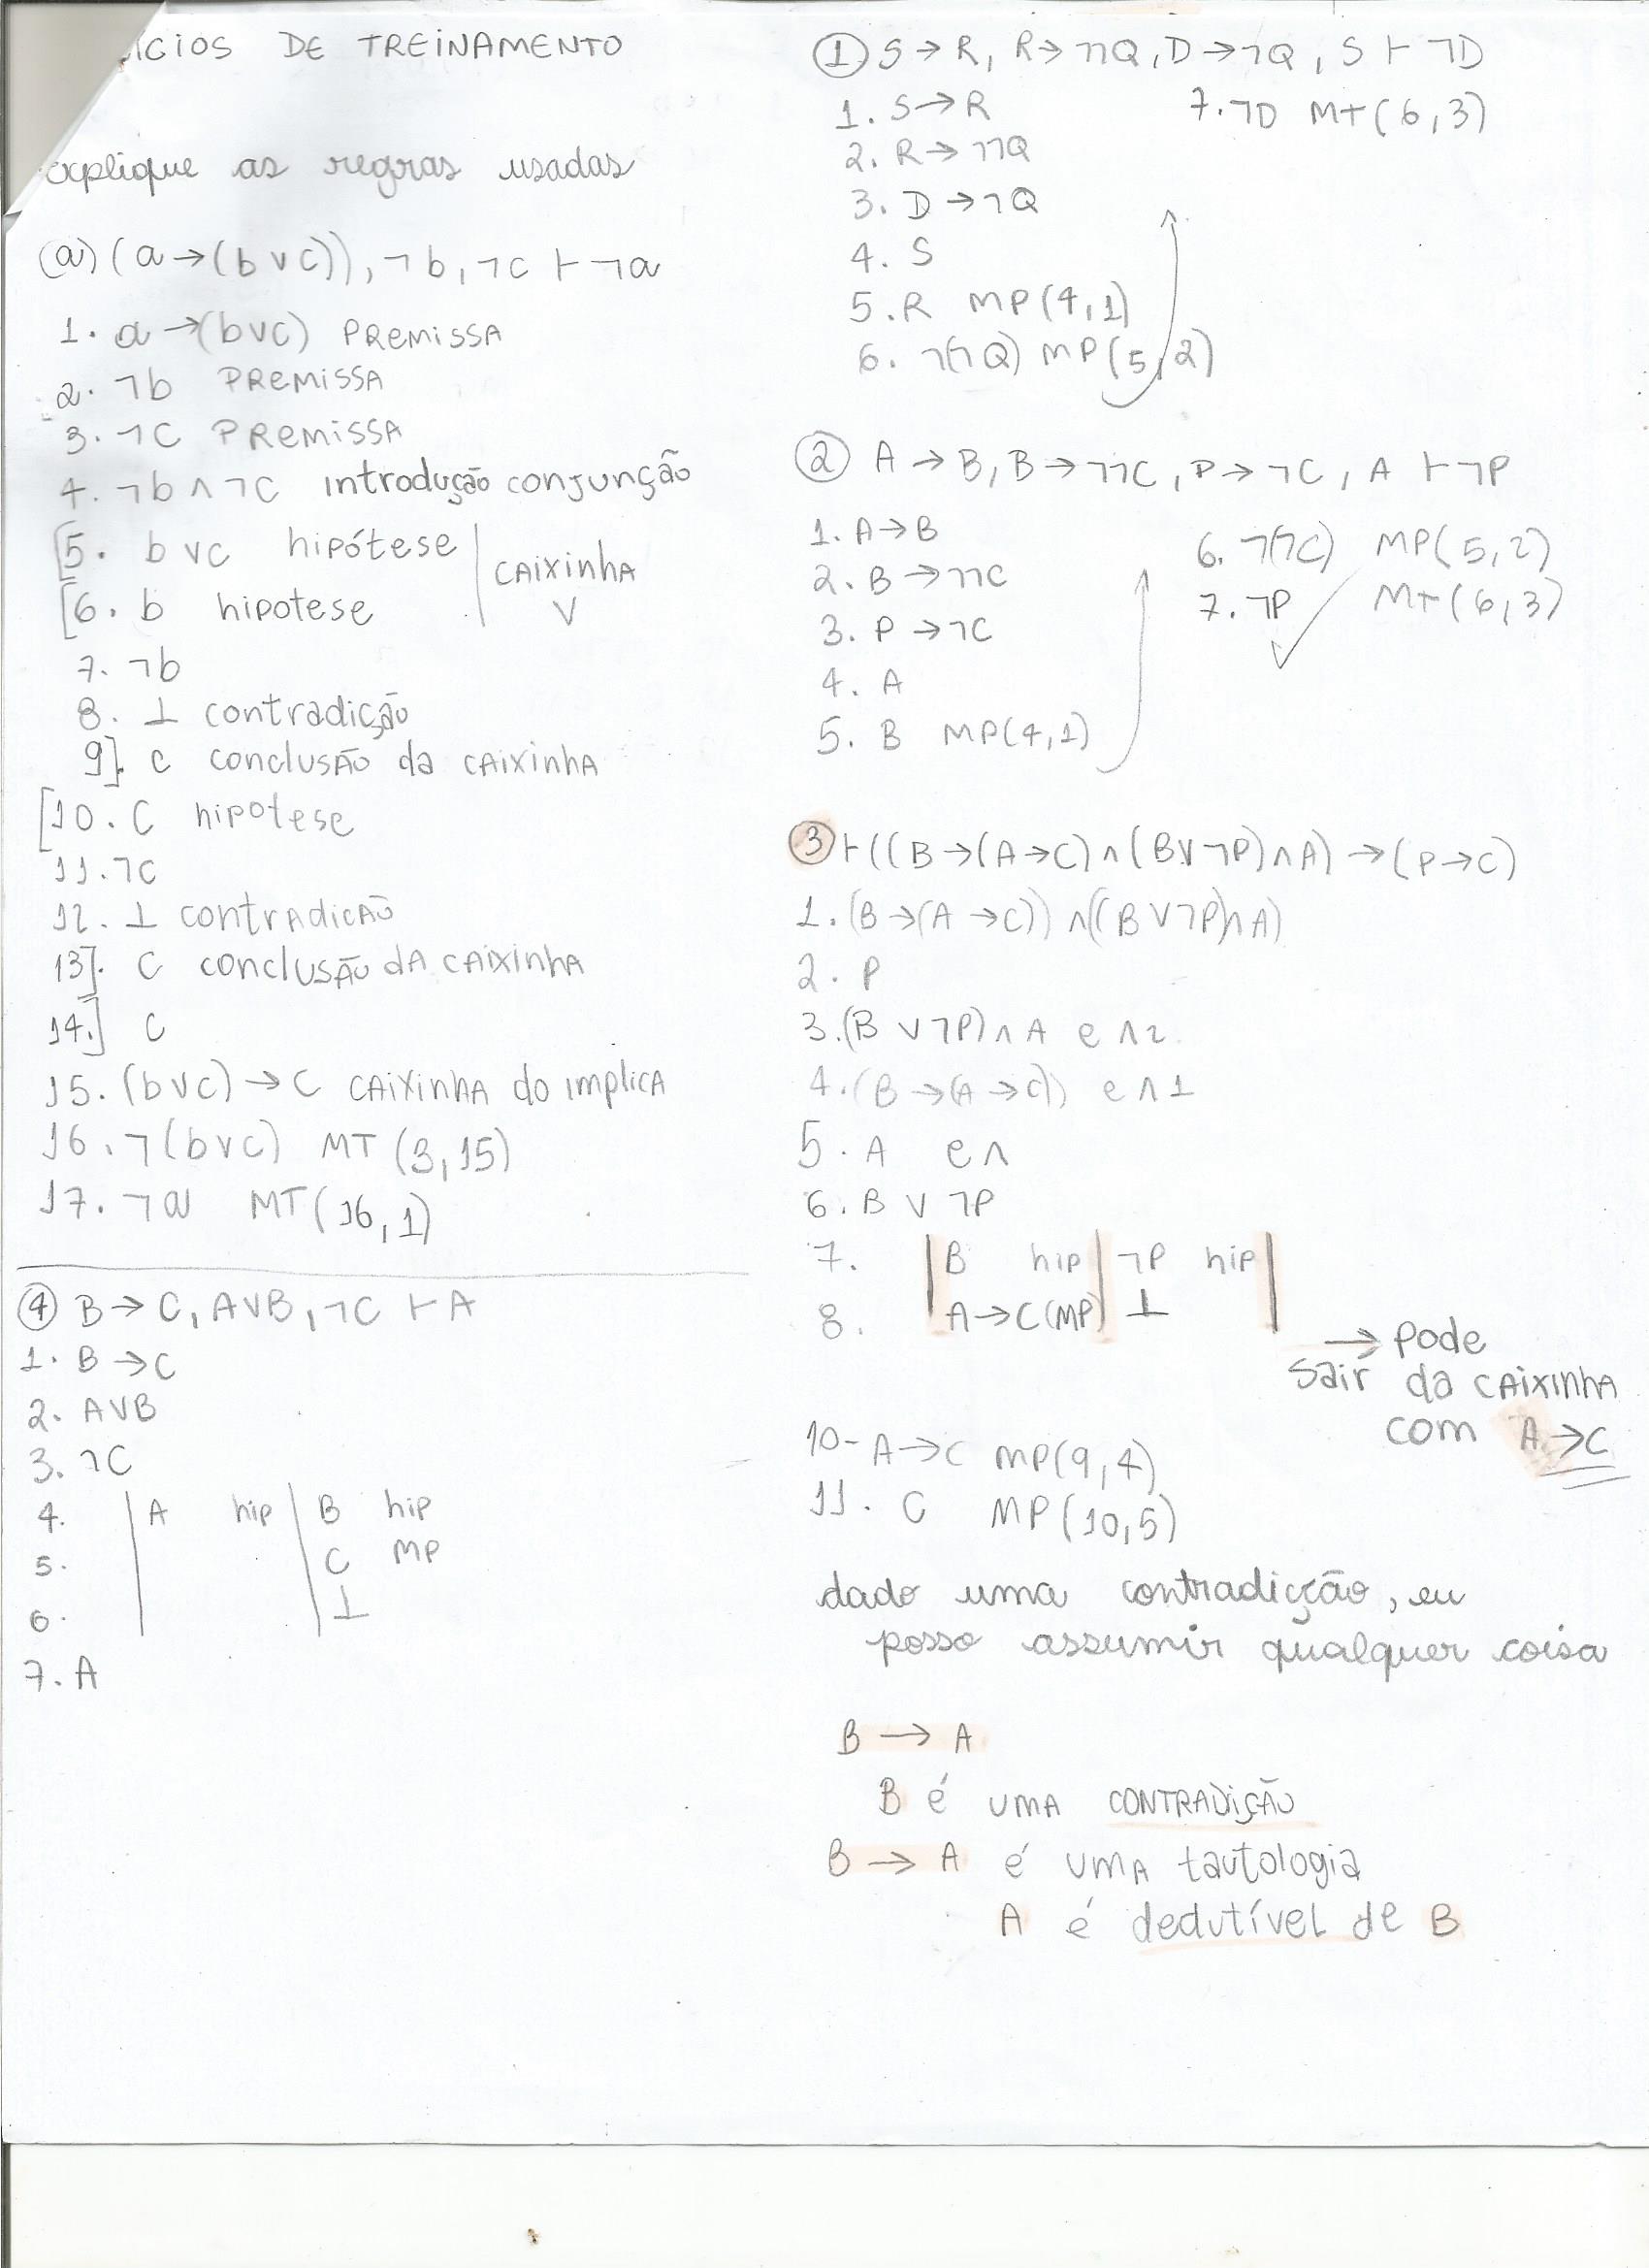 ÍCIOS DE TREINAMENTO
explique as regras usadas
(a) (a → (b ∨ c)), ¬b, ¬c ⊢ ¬a
1. a → (b∨c) PREMISSA
2. ¬b PREMISSA
3. ¬C PREMISSA
4. ¬b ∧ ¬C introdução conjunção
[5. b ∨c hipótese | CAIXINHA
[6. b hipotese | V
7. ¬b
8. ⊥ contradição
9]. C conclusão da CAIXINHA
[10. C hipotese
11. ¬C
12. ⊥ contradicão
13]. C conclusão dA CAIXINHA
14.] C
15. (b∨c) → C CAIXINHA do implicA
16. ¬(b∨c) MT (3,15)
17. ¬a MT(16,1)
④ B → C, A∨B, ¬C ⊢ A
1. B → C
2. A∨B
3. ¬C
4. | A hip | B hip
5. | | C MP
6. | | ⊥
7. A
① S → R, R → ¬¬Q, D → ¬Q, S ⊢ ¬D
1. S → R
2. R → ¬¬Q
3. D → ¬Q
4. S
5. R MP(4,1)
6. ¬(¬Q) MP(5,2)
7. ¬D MT(6,3)
② A → B, B → ¬¬C, P → ¬C, A ⊢ ¬P
1. A → B
2. B → ¬¬C
3. P → ¬C
4. A
5. B MP(4,1)
6. ¬(¬C) MP(5,2)
7. ¬P MT(6,3)
③ ⊢ ((B → (A → C) ∧ (B∨¬P) ∧ A) → (P → C)
1. (B → (A → C)) ∧ ((B ∨ ¬P) ∧ A)
2. P
3. (B ∨ ¬P) ∧ A e ∧ 2
4. (B → (A → C)) e ∧ 1
5. A e ∧
6. B ∨ ¬P
7. | B hip | ¬P hip |
8. | A → C (MP) | ⊥ |
→ Pode
Sair da CAIXINHA
com A → C
10- A → C MP(9,4)
11. C MP(10,5)
dado uma contradicção, eu
posso assumir qualquer coisa
B → A
B é UMA CONTRADIÇÃO
B → A é UMA tautologia
A é dedutível de B